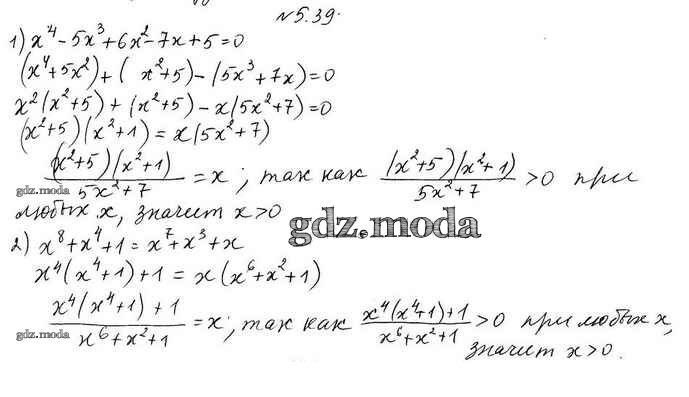 №5.39.
1) x⁴ - 5x³ + 6x² - 7x + 5 = 0
(x⁴ + 5x²) + ( x² + 5) - (5x³ + 7x) = 0
x²(x² + 5) + (x² + 5) - x(5x² + 7) = 0
(x² + 5)(x² + 1) = x(5x² + 7)
(x² + 5)(x² + 1) / 5x² + 7 = x ; так как (x² + 5)(x² + 1) / 5x² + 7 > 0 при
gdz.moda
любых x, значит x > 0
gdz.moda
2) x⁸ + x⁴ + 1 = x⁷ + x³ + x
x⁴(x⁴ + 1) + 1 = x(x⁶ + x² + 1)
x⁴(x⁴ + 1) + 1 / x⁶ + x² + 1 = x ; так как x⁴(x⁴ + 1) + 1 / x⁶ + x² + 1 > 0 при любых x,
gdz.moda
значит x > 0.